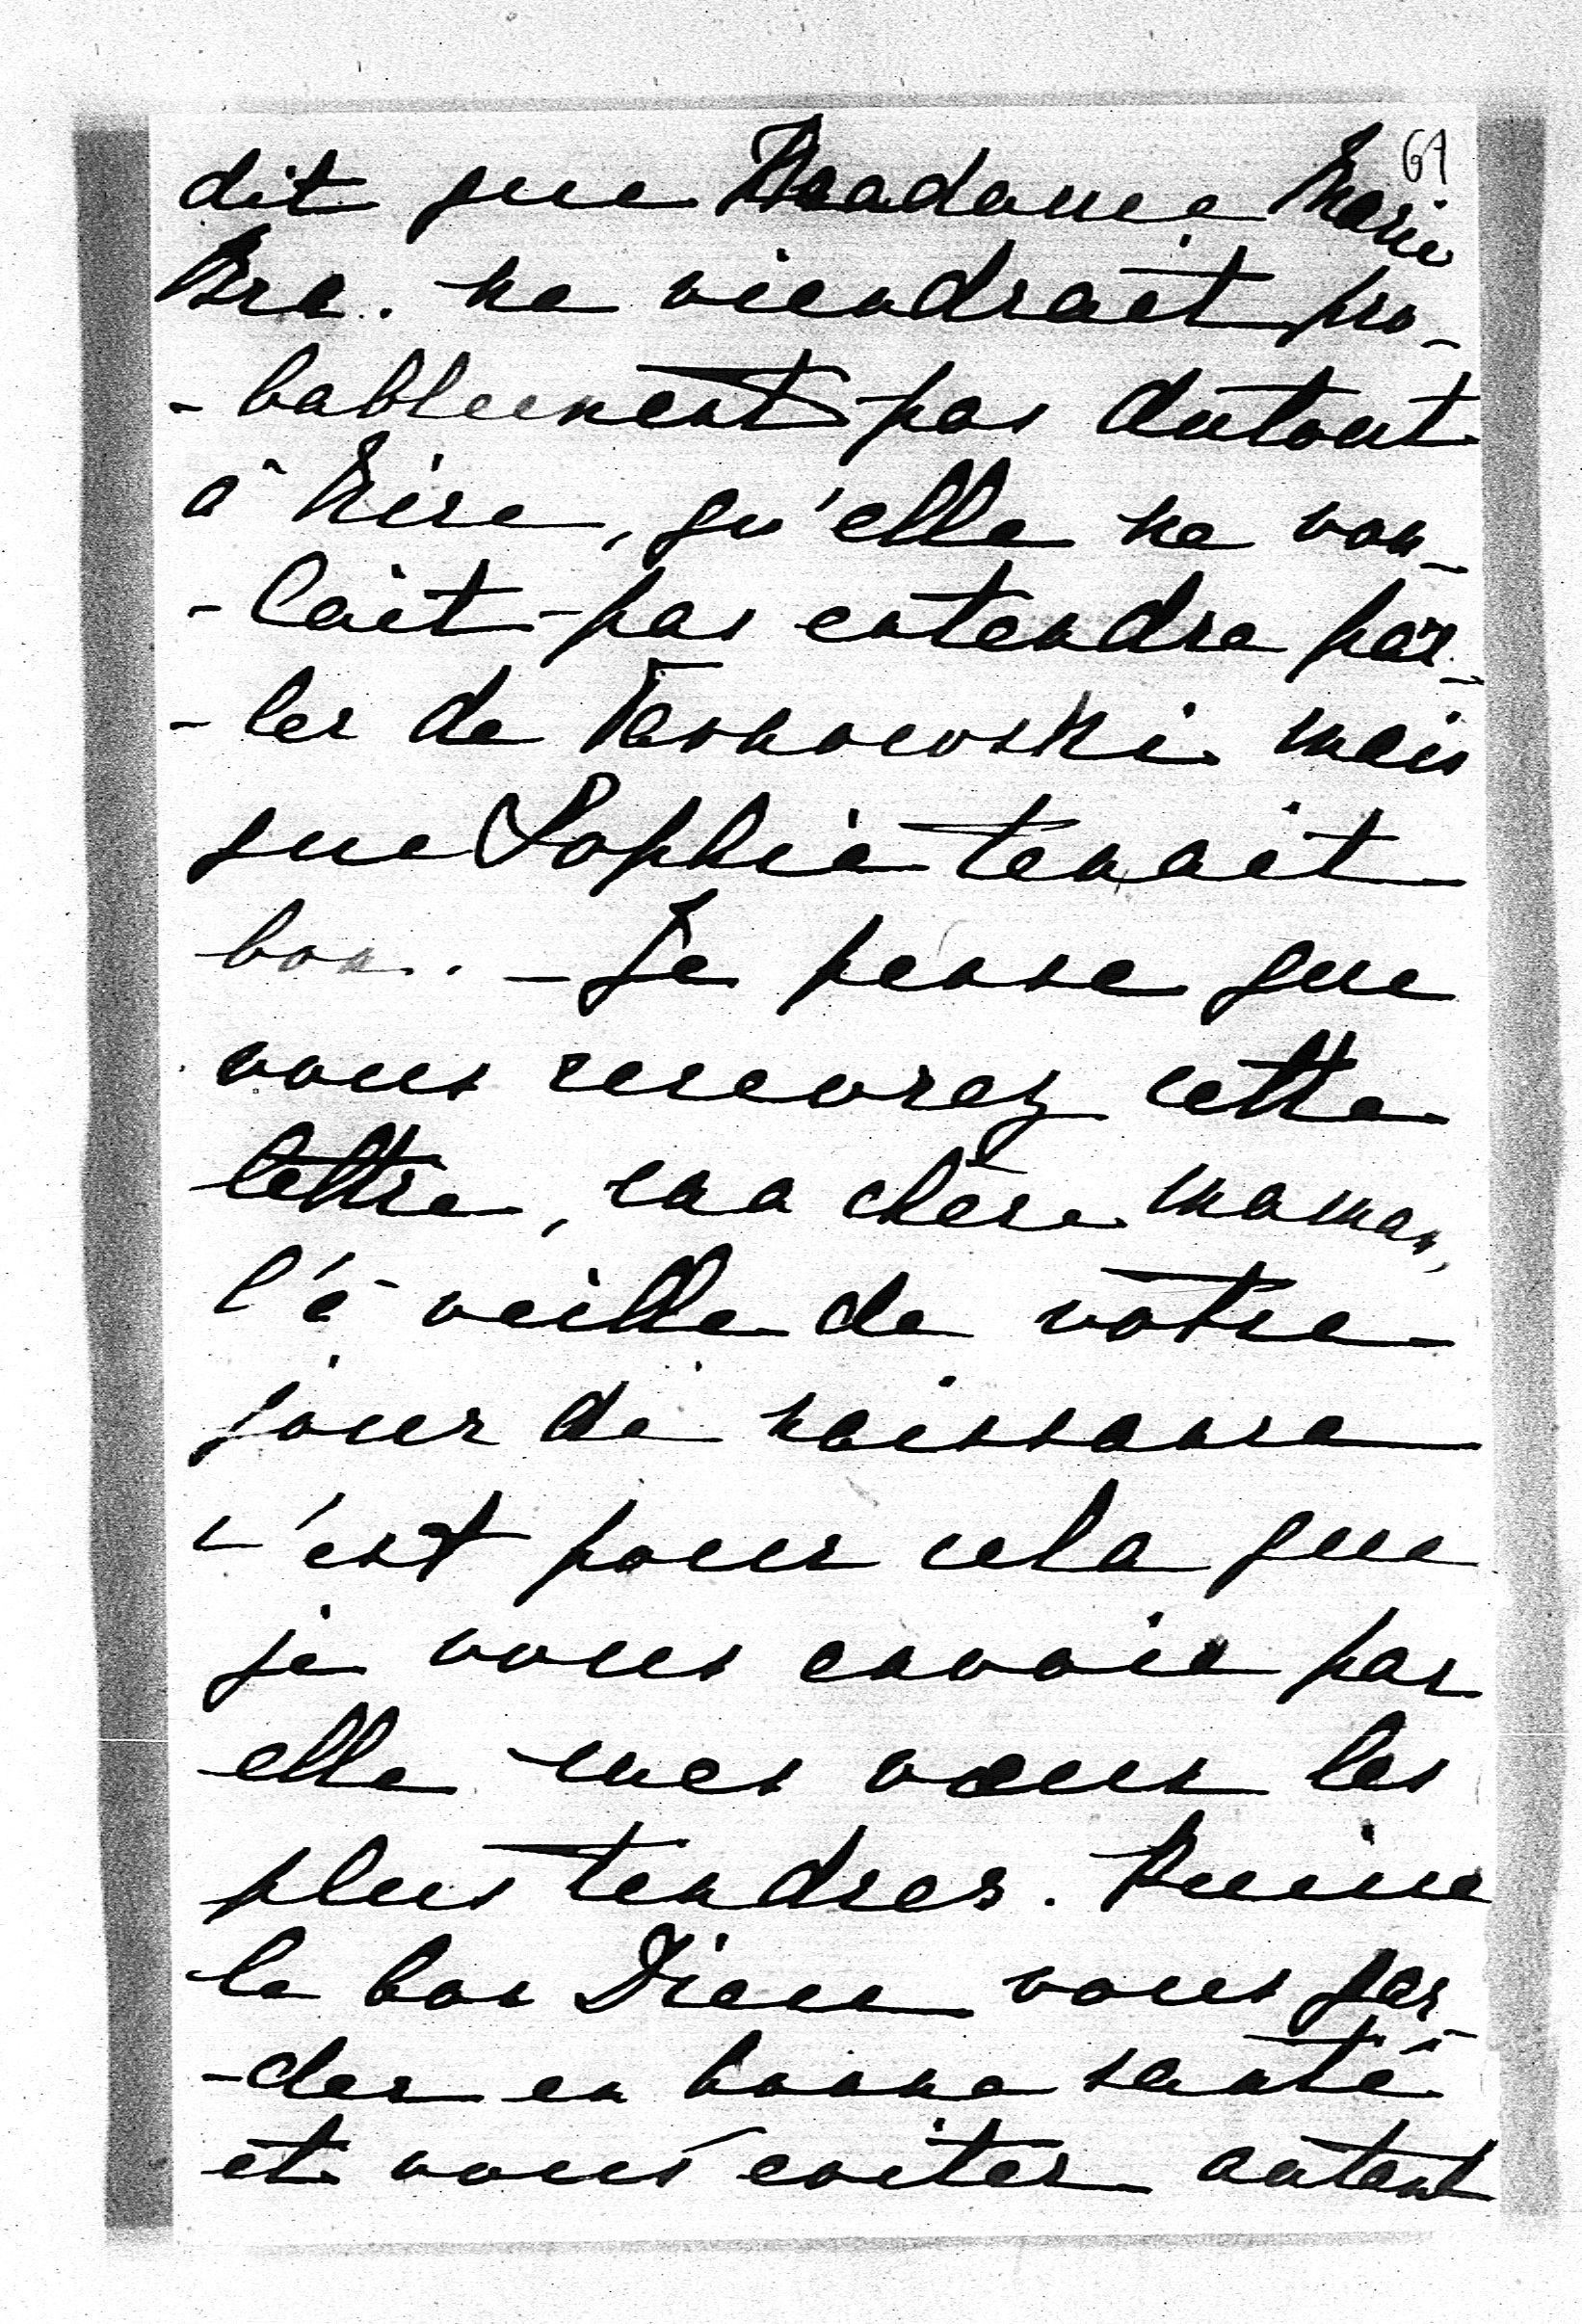 67
dit que Madame Marie
Bra. ne viendrait pro-
-bablement pas dutout
à Nice, qu'elle ne vou-
-lait pas entendre par-
-ler de Tarnowski mais
que Sophie tenait
bon. - Je pense que
vous recevrez cette
lettre, ma chère maman,
l'à veille de votre
jour de naissance
c'est pour cela que
je vous envoie par
elle mes vœux les
plus tendres. Puisse
le bon Dieu vous gar-
-der en bonne santé
et vous éviter autant